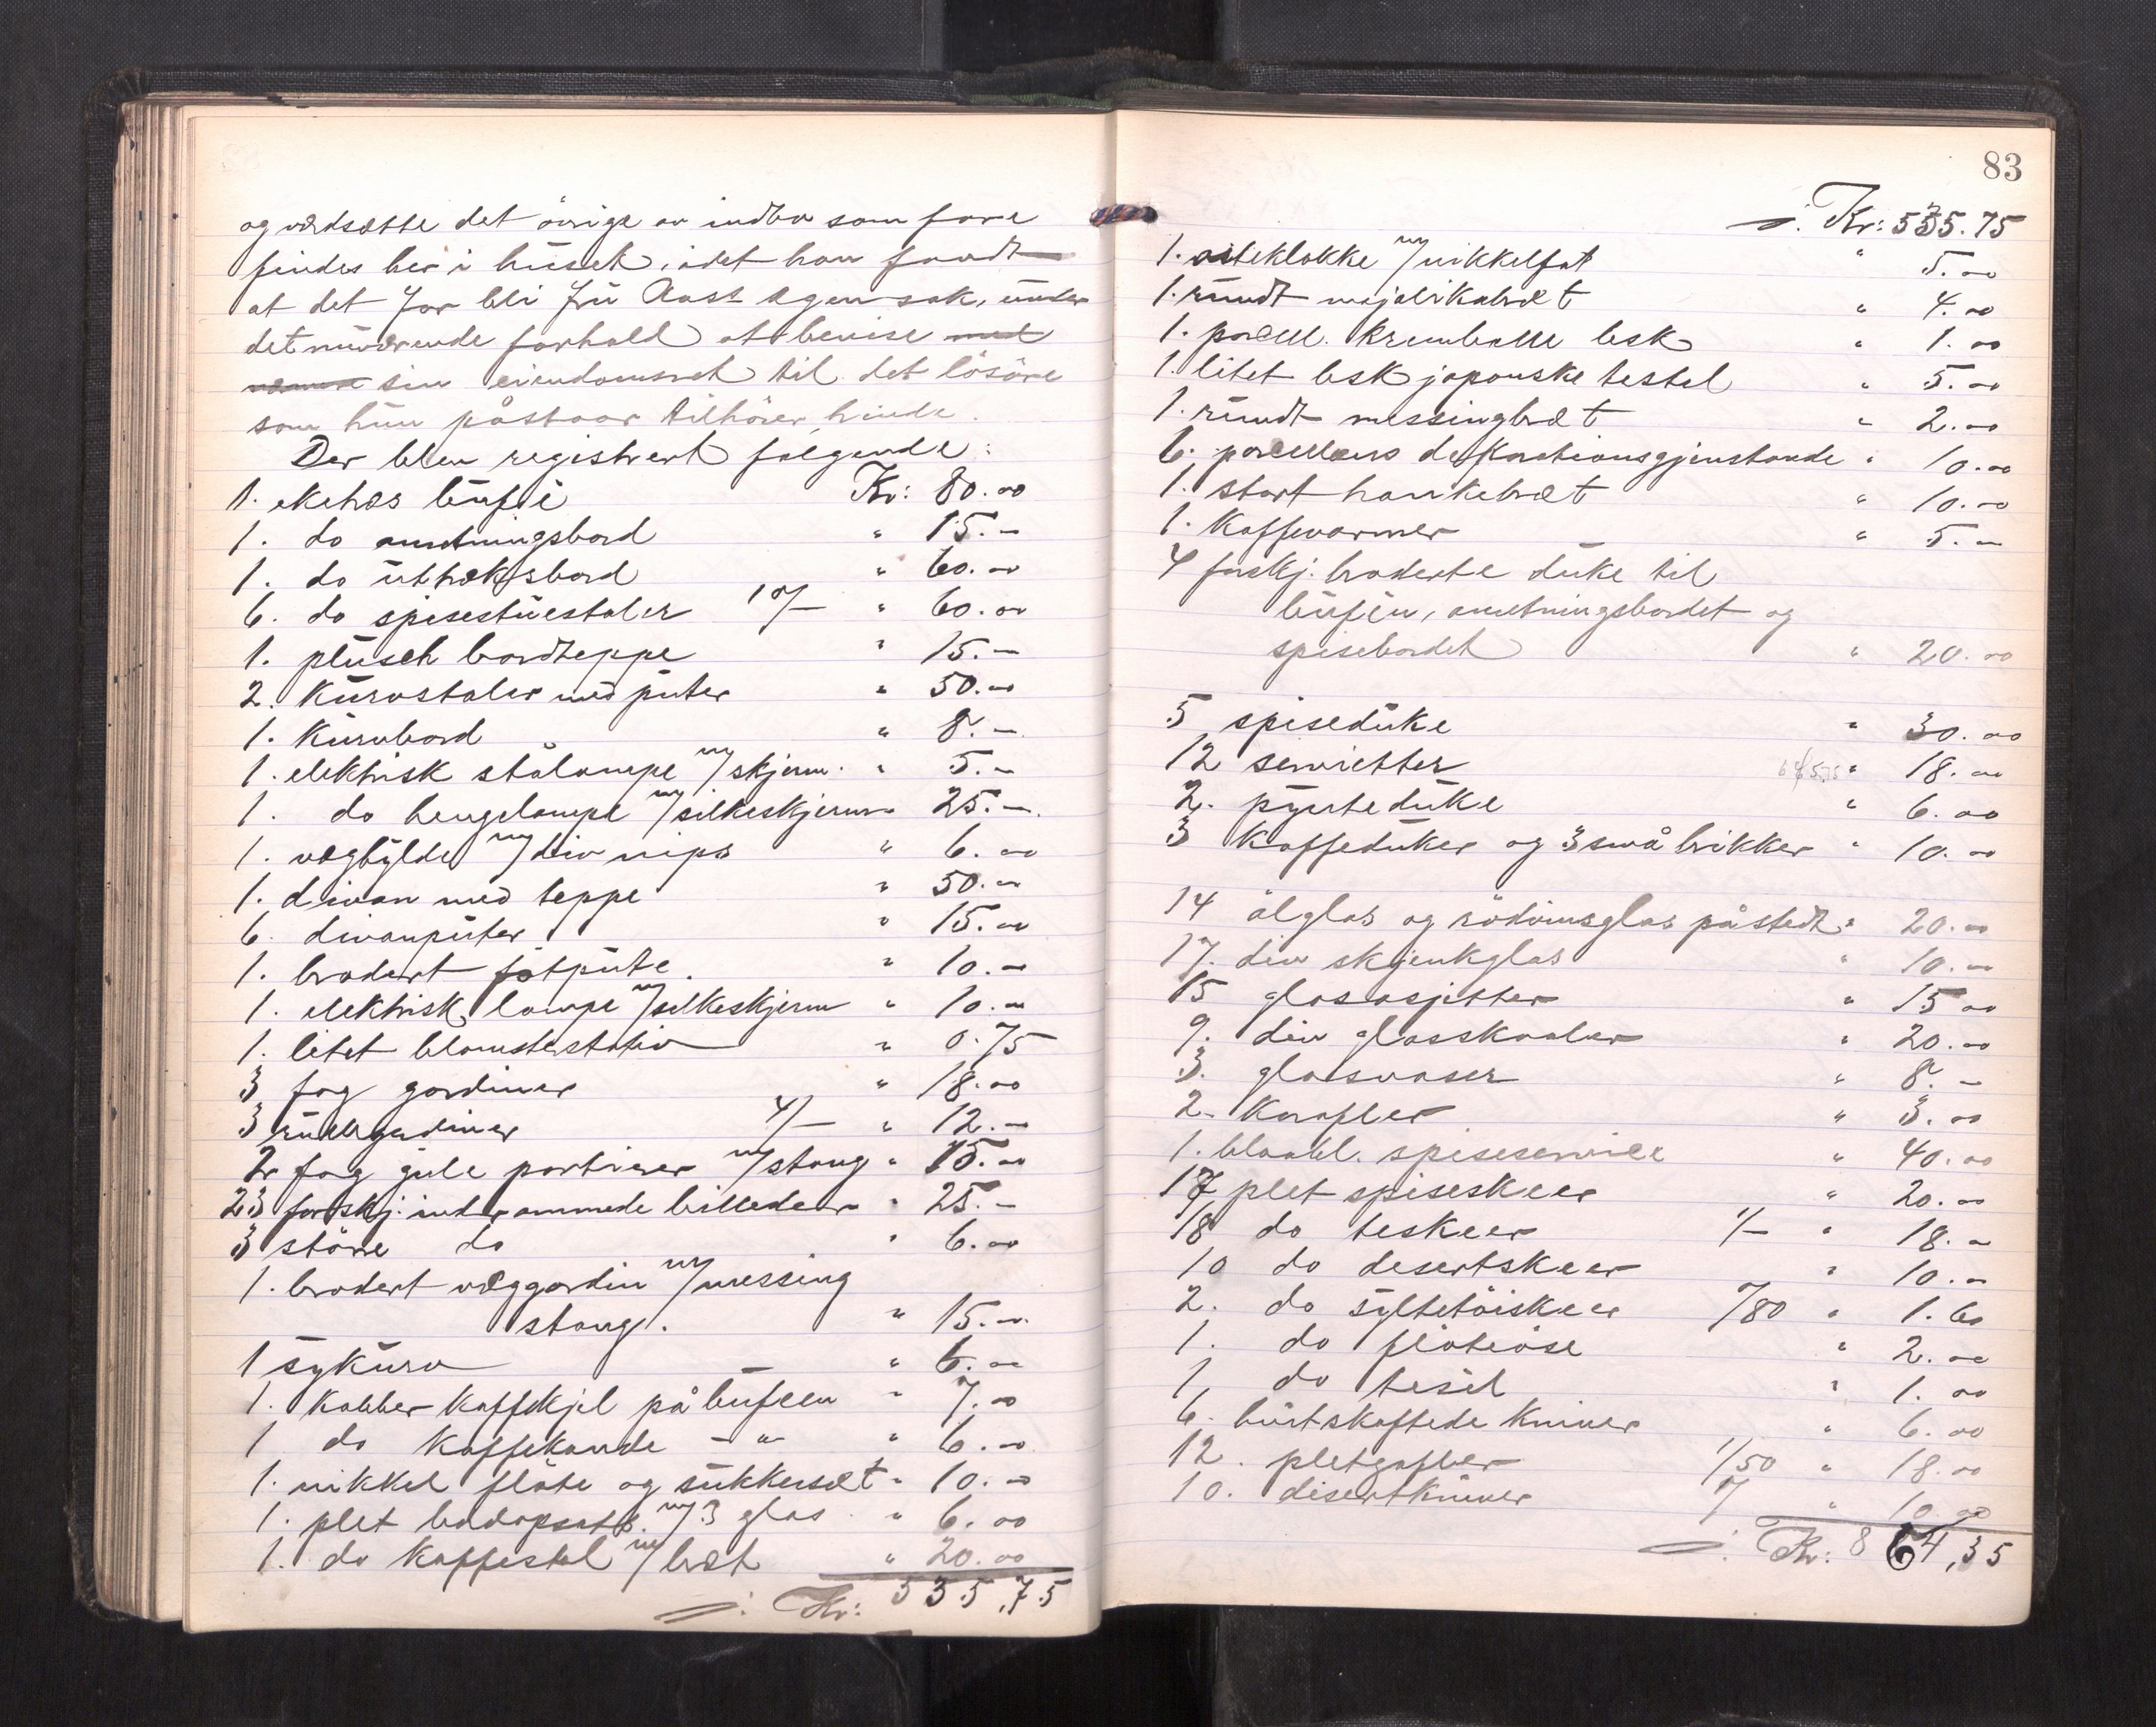 og værdsætte det övrige av indbo som fore
findes her i huset, idet han fandt
at det for bli frü Aast egen sak, under
det nuværende forhold at bevise med
sin eiendomsret til det lösöre
som hun påstaar tilhörer hende.
Der blev registrert fölgende:
1. ekehøs büfe Kr: 80.00
1. do anretningsbord " 15.—
1. do üttræksbord " 60.00
6. do spisestüestoler 10/— " 60.00
1. plüsch bordteppe " 15.—
2. Kürvstoler med püter " 50.00
1. Kürvbord " 8.—
1. elektrisk stålampe m/skjerm. " 5.—
1. do hengelampe m/silkeskjerm " 25.—
1. væghylde m/div nips " 6.00
1. divan med teppe " 50.—
6. divanpüter " 15.00
1. brodert fotpüte. " 10.—
1. elektrisk lampe m/silkeskjerm " 10.—
1. litet blomsterstativ " 0.75
3 fag gardiner " 18.00
3 rüllegardiner 4/— " 12.—
2 fag güle portierer m/stang " 15.00
23 forskj. indrammede billeder " 25.—
3 större do " 6.00
1. brodert væggardin m/messing
stang. " 15.—
1 sykürv " 6.00
1. Kobber Kaffekjel på büfeen " 7.00
1 do Kaffekande —"— " 6.00
1. nikkel flöte og sükkersæt " 10.00
1. plet bordopsats m/3 glas " 6.00
1. do Kaffestel m/bræt " 20.00
Kr: 535,75
83
Kr: 535.75
1. osteklokke m/nikkelfat " 5.00
1. rundt majolikabræt " 4.00
1. porcell. Krumbolle besk " 1.00
1. litet besk japanske testel " 5.00
1. rundt messingbræt " 2.00
6. porcellæns dekorationsgjenstande " 10.00
1. stort hankebræt " 10.00
1. Kaffevarmer " 5.—
4 forskj. broderte düke til
büfeen, anretningsbordet og
spisebordet " 20.00
5 spisedüke " 30.00
12 servietter " 18.00
2. pyntedüke " 6.00
3 Kaffedüker og 3 små brikker " 10.00
14 ölglas og rödvinsglas påstedt " 20.00
17. div skjenkglas " 10.—
15 glasasjetter " 15.00
9. div glasskaaler " 20.00
3. glasvaser " 8.—
2. Karafler " 3.00
1. blaabl. spiseservice " 40.00
17 plet spiseskeer " 20.00
18 do teskeer 1/— " 18.—
10 do desertskeer " 10.—
2. do syltetöiskeer /80 " 1.60
1. do flöteöse " 2.00
1. do tesil " 1.00
6. hürtskaftede Kniver " 6.00
12. pletgafler 1/50 " 18.00
10. disertkniver " 10.00
Kr: 864,35